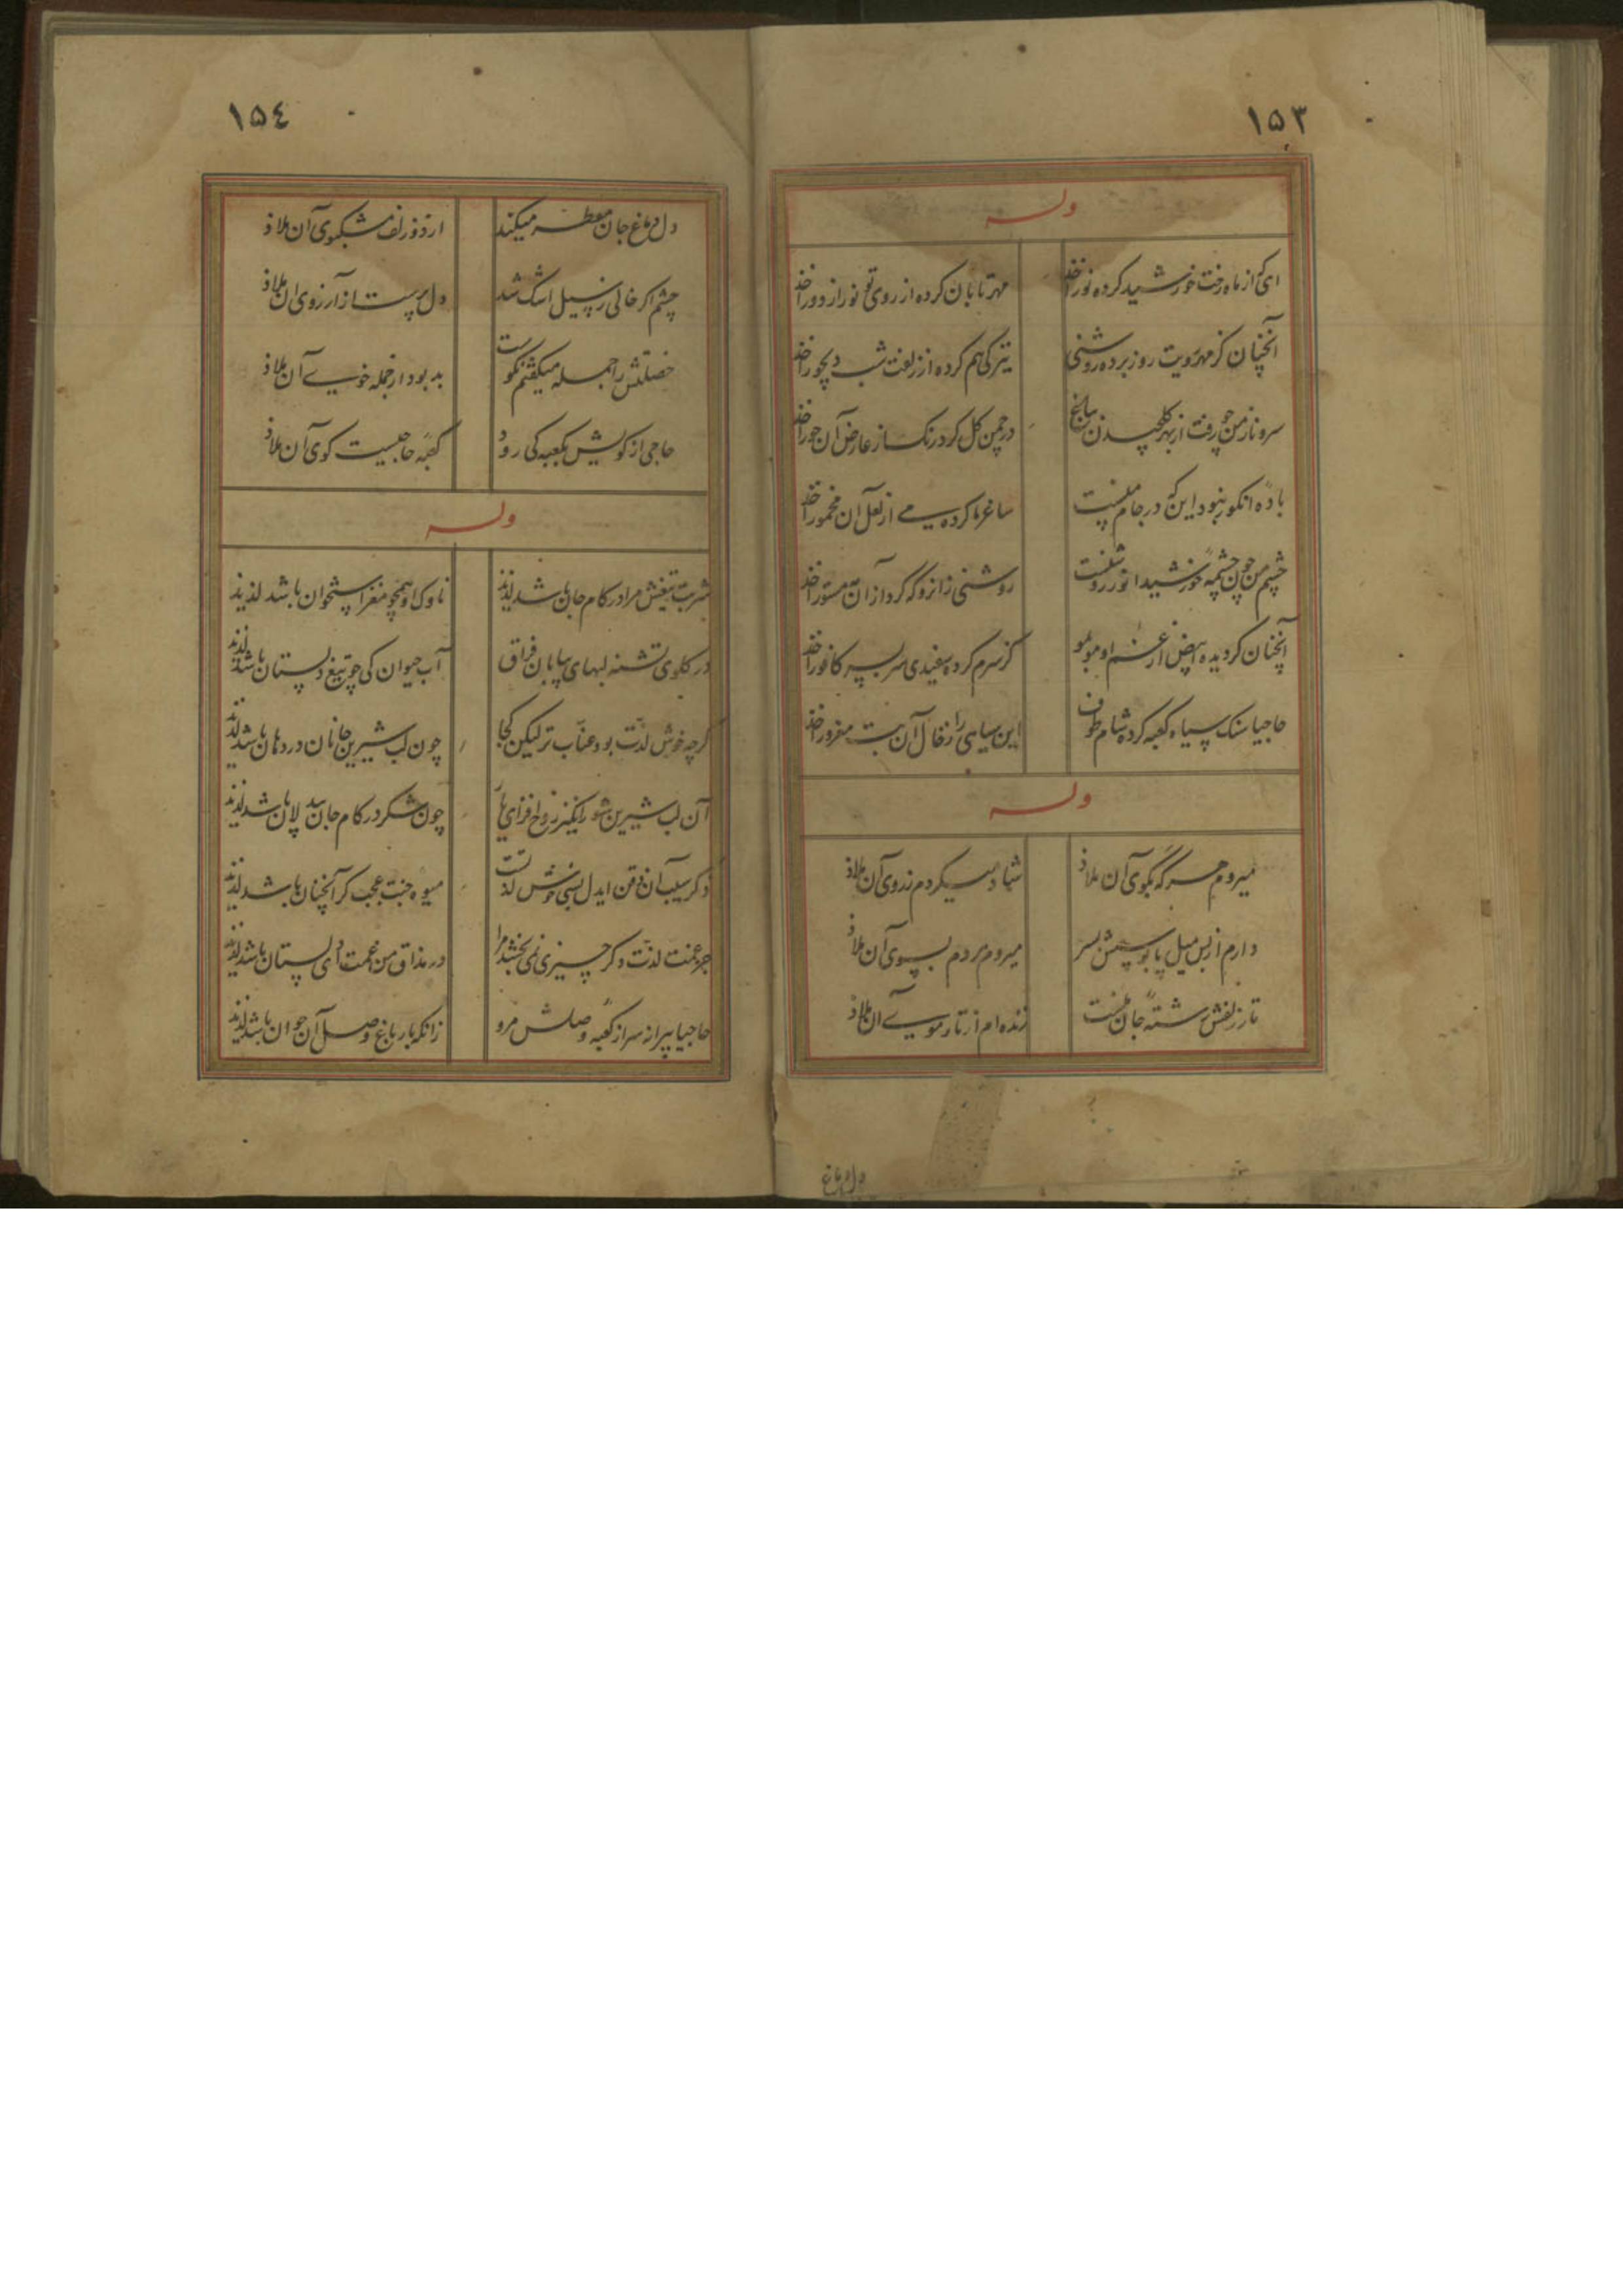 ۱۵۳
وله
ای که از ماه رخت خورشید کرده نور اخذ
مهر تابان کرده از روی تو نور از دور اخذ
آنچنان کز مهر رویت روز برده روشنی
تیرکی هم کرده از زلفت شب دیجور اخذ
سرو ناز من چو رفت از بهر کلچیدن بباغ
در چمن کل کرد رنک از عارض آن حور اخذ
باده انکور نبود این که در جام منست
ساغر ما کرده می از لعل آن مخمور اخذ
چشم من چون چشمه خورشید از نور رو شکفت
روشنی زانرو که کرد از آن مستور اخذ
آنچنان کردیده ابیض از غم او مو بمو
کز سرم کرده سفیدی سر بسر کافور اخذ
حاجیا سنک سیاه کعبه کرده شام طوف
این سیاهی را ز خال آن بت مغرور اخذ
وله
میروم هر که بکوی آن ملاذ
شاد میکردم ز روی آن ملاذ
دارم از بس میل پابوسیش بسر
میروم هر دم بسوی آن ملاذ
تار زلفش رشته جان منست
زنده ام از تار موی آن ملاذ
دل دماغ
۱۵٤
دل دماغ جان معطر میکند
از دو زلف مشکبوی آن ملاذ
چشم اکر خالی ز سیل اشک شد
دل پرست از آرزوی آن ملاذ
خصلتش را جمله میکفتم نکوست
بد بود از جمله خوی آن ملاذ
حاجی از کویش بکعبه کی رود
کعبه حاجیست کوی آن ملاذ
وله
شربت تیغش مرا در کام جان باشد لذیذ
ناوک او همچو مغز استخوان باشد لذیذ
در کلوی تشنه لبهای بیابان فراق
آب حیوان کی چو تیغ دلستان باشد لذیذ
کرچه خوش لذت بود عناب تر لیکن کجا
چون لب شیرین جانان در دهان باشد لذیذ
آن لب شیرین شور انکیز روح افزای یار
چون شکر در کام جان بیدلان باشد لذیذ
ذکر سیب آن ذقن ایدل بسی خوش لذتست
میوه جنت عجب کر آنچنان باشد لذیذ
جز غمت لذت دکر چیزی نمی بخشد مرا
در مذاق من غمت ای دلستان باشد لذیذ
حاجیا پیرانه سر از کعبه وصلش مرو
زانکه بار باغ وصل آن جوان باشد لذیذ